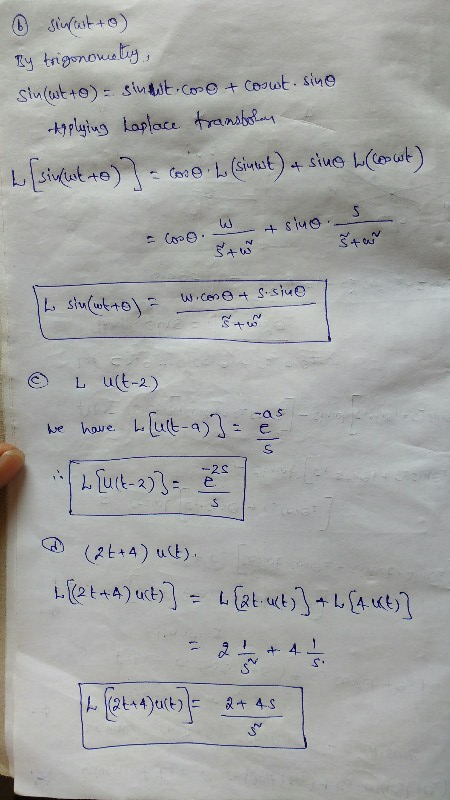 ⓑ sin(ωt+θ)
By trigonometry,
sin(ωt+θ) = sinωt·cosθ + cosωt·sinθ
Applying Laplace transform
L[sin(ωt+θ)] = cosθ·L(sinωt) + sinθ L(cosωt)
= cosθ· ω/(s²+ω²) + sinθ· s/(s²+ω²)
L sin(ωt+θ) = (ω·cosθ + s·sinθ)/(s²+ω²)
ⓒ L u(t-2)
We have L[u(t-a)] = e^{-as}/s
∴ L[u(t-2)] = e^{-2s}/s
ⓓ (2t+4) u(t).
L[(2t+4) u(t)] = L[2t·u(t)] + L[4 u(t)]
= 2 1/s² + 4 1/s.
L[(2t+4)u(t)] = (2+4s)/s²